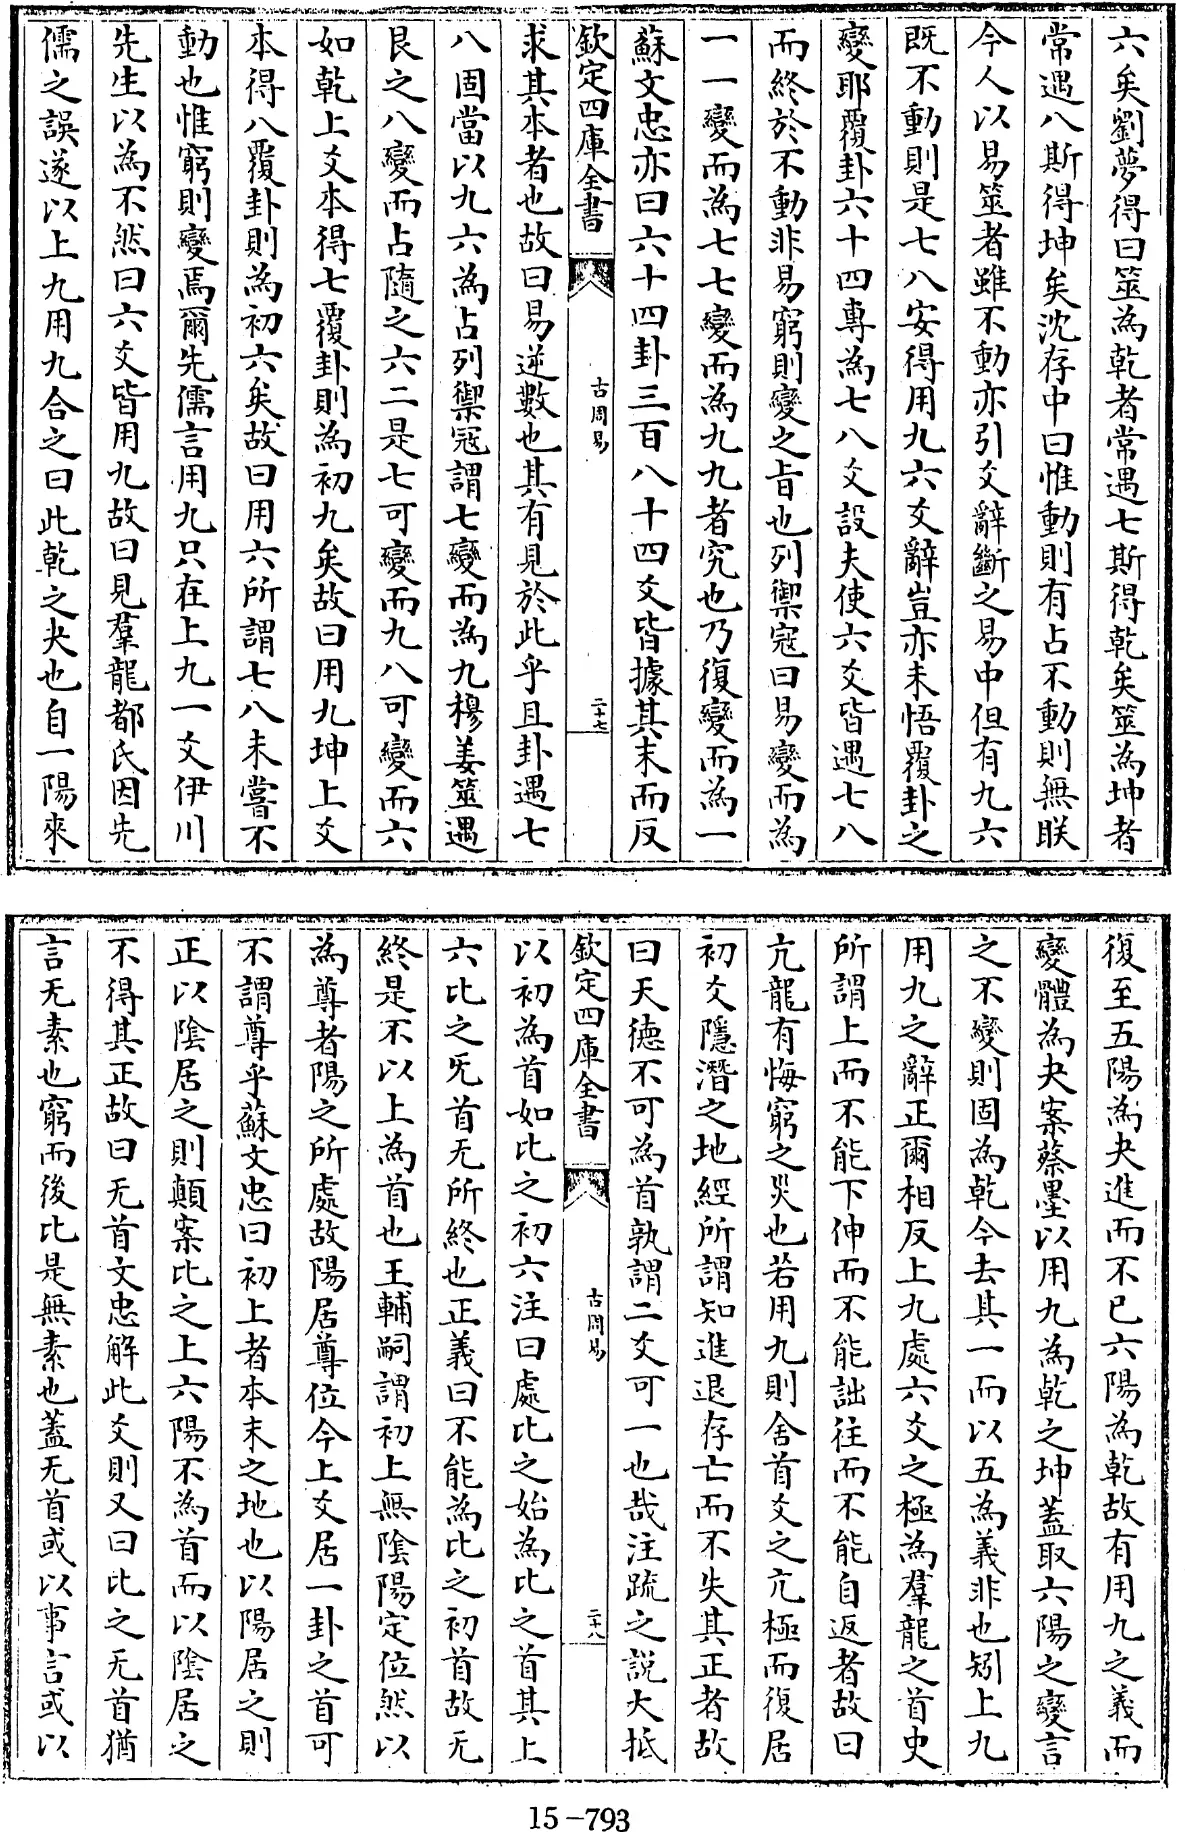 六矣劉夢得曰筮為乾者常遇七斯得乾矣筮為坤者
常遇八斯得坤矣沈存中曰惟動則有占不動則無朕
今人以易筮者雖不動亦引爻辭斷之易中但有九六
既不動則是七八安得用九六爻辭豈亦未悟覆卦之
變耶覆卦六十四專為七八爻設夫使六爻皆遇七八
而終於不動非易窮則變之旨也列禦寇曰易變而為
一一變而為七七變而為九九者究也乃復變而為一
蘇文忠亦曰六十四卦三百八十四爻皆據其末而反
欽定四庫全書 古周易 二十七
求其本者也故曰易逆數也其有見於此乎且卦遇七
八固當以九六為占列禦冠謂七變而為九穆姜筮遇
艮之八變而占隨之六二是七可變而九八可變而六
如乾上爻本得七覆卦則為初九矣故曰用九坤上爻
本得八覆卦則為初六矣故曰用六所謂七八未嘗不
動也惟窮則變焉爾先儒言用九只在上九一爻伊川
先生以為不然曰六爻皆用九故曰見羣龍都氏因先
儒之誤遂以上九用九合之曰此乾之夬也自一陽來
復至五陽為夬進而不已六陽為乾故有用九之義而
變體為夬案蔡墨以用九為乾之坤蓋取六陽之變言
之不變則固為乾今去其一而以五為義非也矧上九
用九之辭正爾相反上九處六爻之極為羣龍之首史
所謂上而不能下伸而不能詘往而不能自返者故曰
亢龍有悔窮之災也若用九則舍首爻之亢極而復居
初爻隱潛之地經所謂知進退存亡而不失其正者故
曰天德不可為首孰謂二爻可一也哉注疏之說大抵
欽定四庫全書 古周易 二十八
以初為首如比之初六注曰處比之始為比之首其上
六比之旡首无所終也正義曰不能為比之初首故无
終是不以上為首也王輔嗣謂初上無陰陽定位然以
為尊者陽之所處故陽居尊位今上爻居一卦之首可
不謂尊乎蘇文忠曰初上者本末之地也以陽居之則
正以陰居之則顛案比之上六陽不為首而以陰居之
不得其正故曰无首文忠解此爻則又曰比之无首猶
言无素也窮而後比是無素也蓋无首或以事言或以
15-793